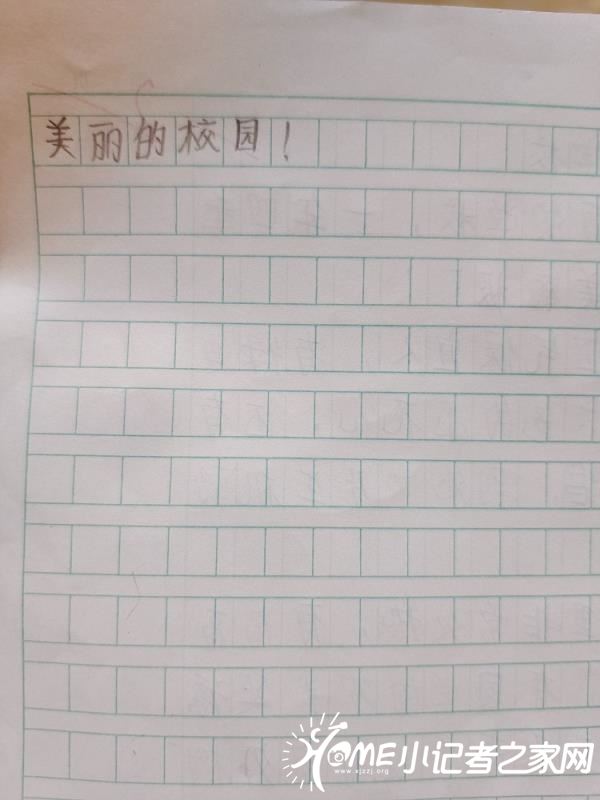 美丽的校园！
HOME小记者之家网
www.xjzzj.org